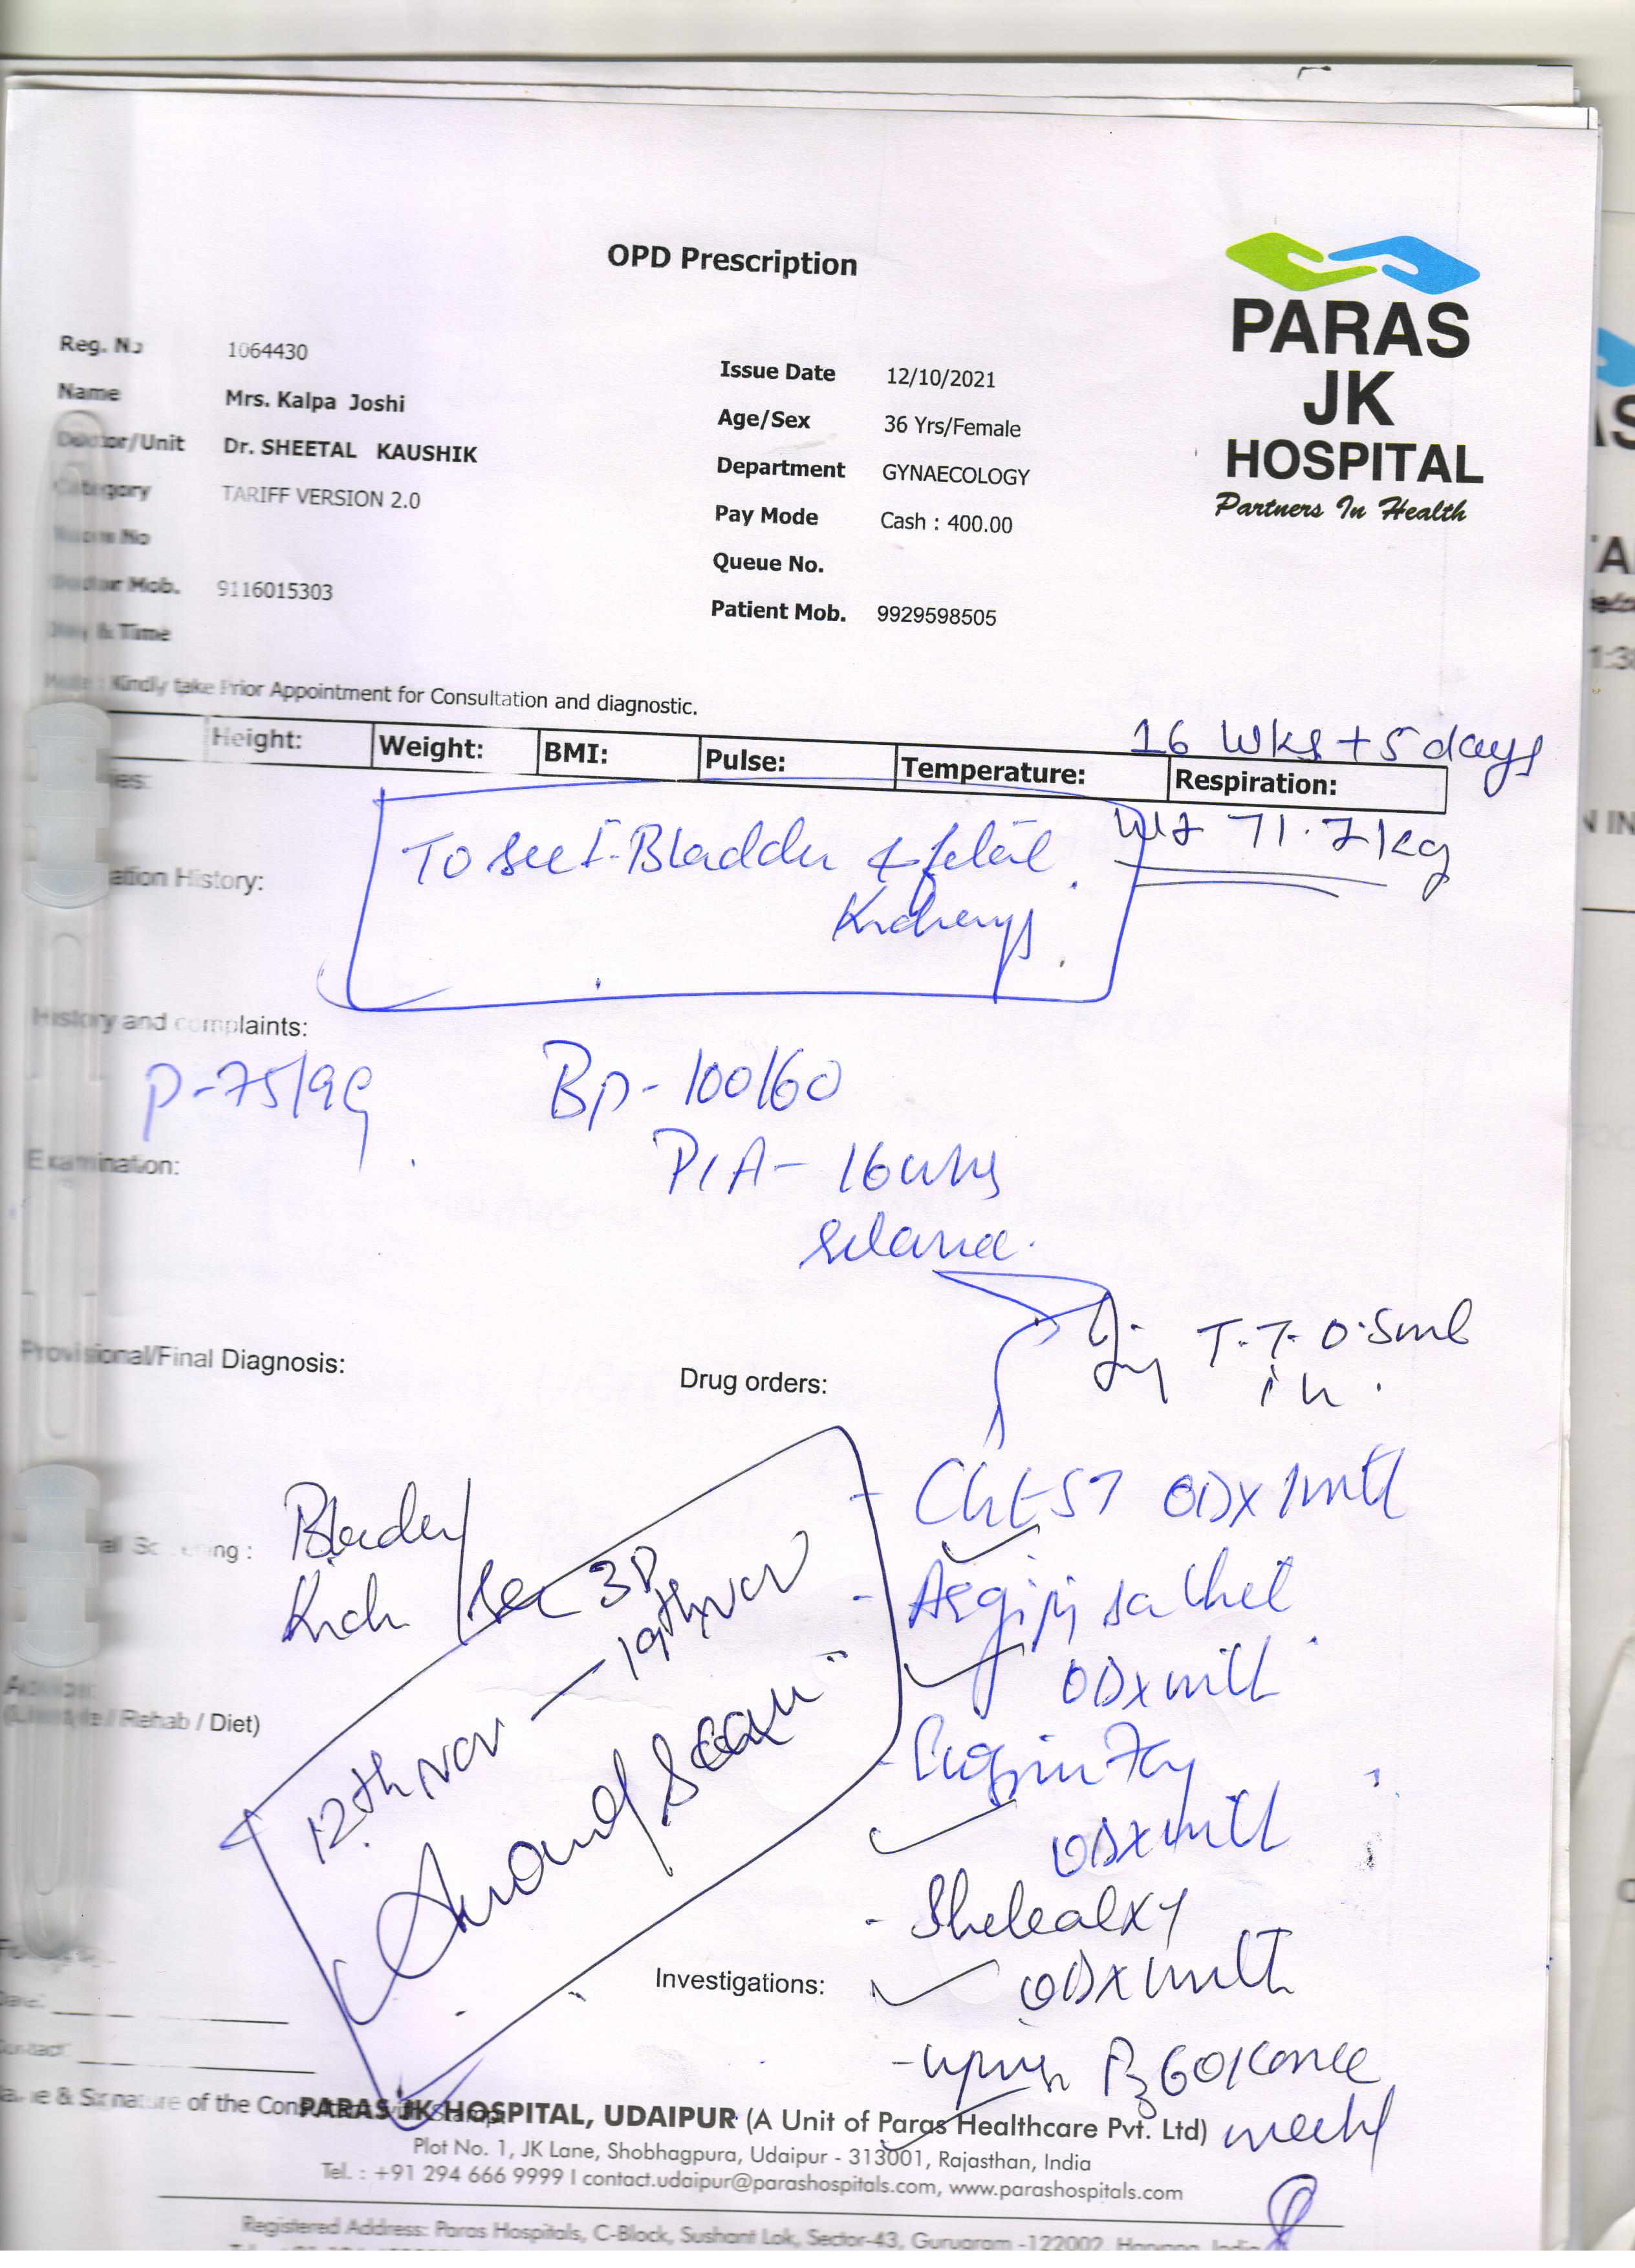 OPD Prescription
PARAS
JK
HOSPITAL
Partners In Health
Reg. No 1064430
Name Mrs. Kalpa Joshi
Doctor/Unit Dr. SHEETAL KAUSHIK
Category TARIFF VERSION 2.0
Room No
Doctor Mob. 9116015303
Day & Time
Issue Date 12/10/2021
Age/Sex 36 Yrs/Female
Department GYNAECOLOGY
Pay Mode Cash : 400.00
Queue No.
Patient Mob. 9929598505
Note : Kindly take Prior Appointment for Consultation and diagnostic.
16 wks + 5 days
Height: Weight: BMI: Pulse: Temperature: Respiration:
wt 71.7 kg
To see Bladder & fetal
Kidneys
ation History:
History and complaints:
P-75/
BP-100/60
Examination:
P/A - 16 wks
Inj T.T. 0.5ml
Provisional/Final Diagnosis:
Drug orders:
OD x 1 mth
sachet
OD x mth
OD x mth
Shelcal XT
OD x mth
60K once
weekly
Bladder
12th Nov — 19th Nov
Scan
(Lifestyle / Rehab / Diet)
Investigations:
Name & Signature of the Consultant with Stamp
PARAS JK HOSPITAL, UDAIPUR (A Unit of Paras Healthcare Pvt. Ltd)
Plot No. 1, JK Lane, Shobhagpura, Udaipur - 313001, Rajasthan, India
Tel. : +91 294 666 9999 I contact.udaipur@parashospitals.com, www.parashospitals.com
Registered Address: Paras Hospitals, C-Block, Sushant Lok, Sector-43, Gurugram -122002, Haryana, India